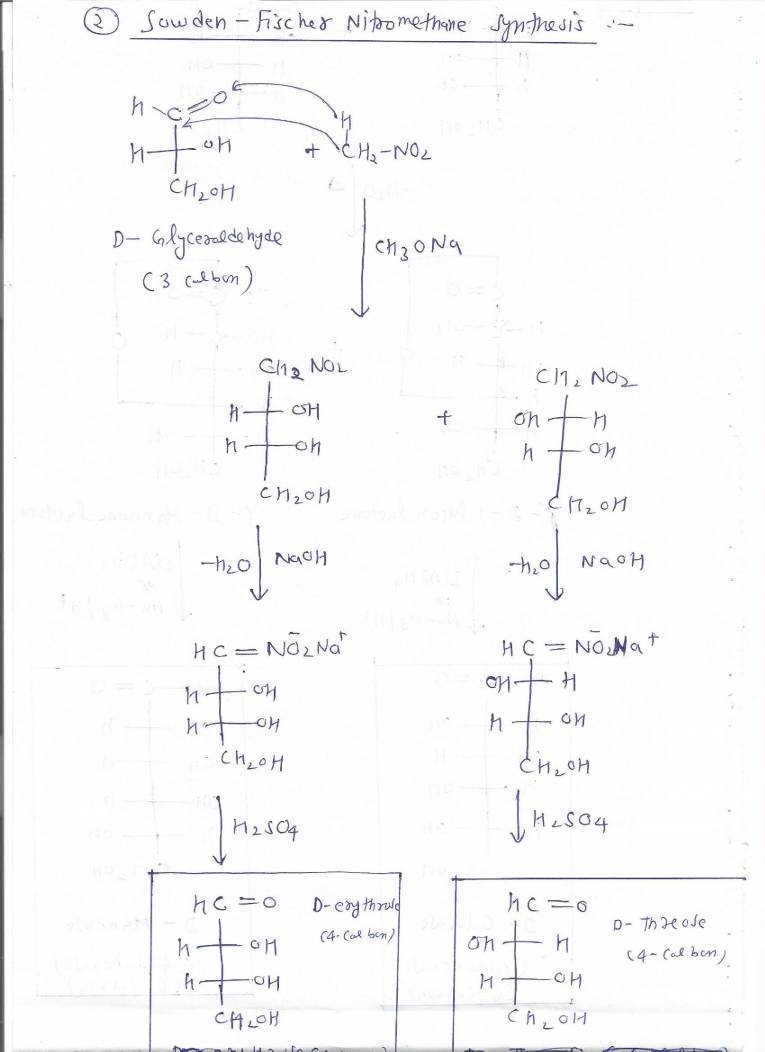 ② Sowden - Fischer Nitromethane Synthesis :-
H C = O H
H OH + CH2-NO2
CH2OH
D- Glyceraldehyde CH3ONa
(3 Carbon)
CH2 NO2 CH2 NO2
H OH + OH H
H OH H OH
CH2OH CH2OH
-H2O NaOH -H2O NaOH
HC = NO2Na+ HC = NO2Na+
H OH OH H
H OH H OH
CH2OH CH2OH
H2SO4 H2SO4
HC = O D-erythrose HC = O D- Threose
H OH (4-Carbon) OH H (4-Carbon)
H OH H OH
CH2OH CH2OH